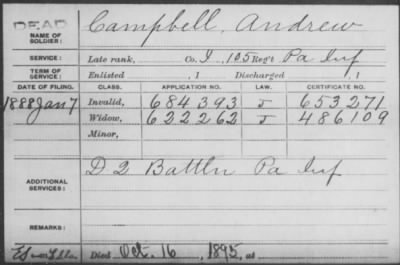 DEAD
NAME OF SOLDIER: Campbell, Andrew
SERVICE: Late rank, Co. I, 105 Reg't Pa Inf
TERM OF SERVICE: Enlisted , 1 Discharged , 1
DATE OF FILING. CLASS. APPLICATION NO. LAW. CERTIFICATE NO.
1888 Jan 7 Invalid, 684393 J 653271
Widow, 622262 J 486109
Minor,
ADDITIONAL SERVICES: D 2 Battln Pa Inf
REMARKS:
Died Oct. 16, 1895, at